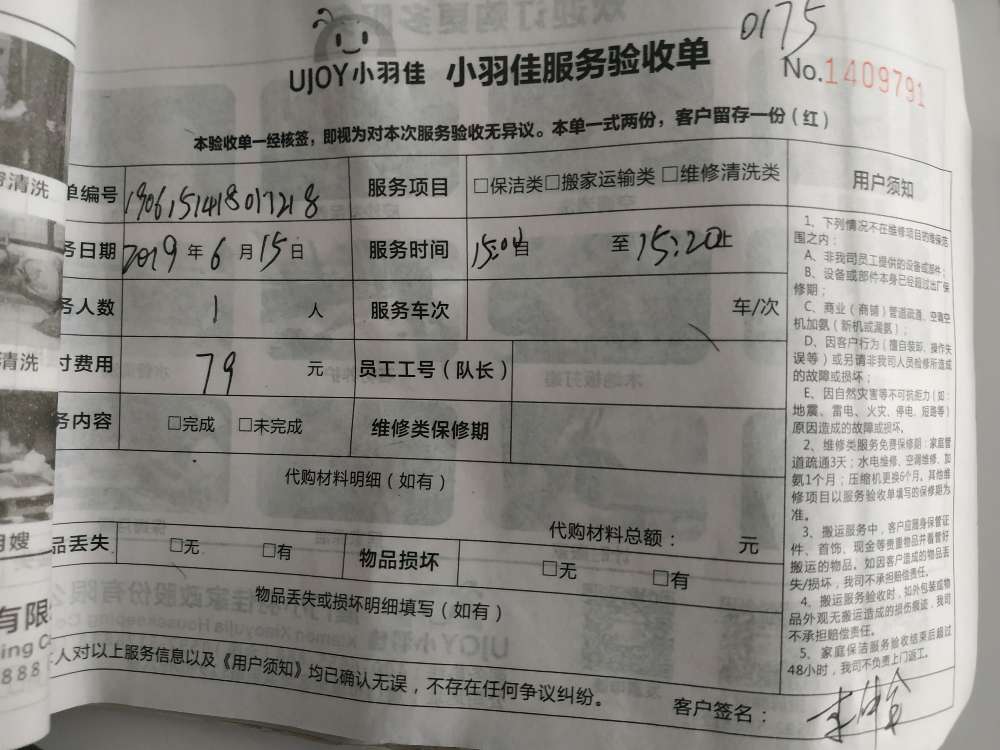 0175
UJOY小羽佳 小羽佳服务验收单 No.1409791
本验收单一经核签，即视为对本次服务验收无异议。本单一式两份，客户留存一份（红）
单编号 1906151418017218 服务项目 □保洁类□搬家运输类 □维修清洗类
务日期 2019年6月15日 服务时间 15:04自 至15:20止
务人数 1 人 服务车次 车/次
付费用 79 元 员工工号（队长）
务内容 □完成 □未完成 维修类保修期
代购材料明细（如有）
代购材料总额： 元
品丢失 □无 □有 物品损坏 □无 □有
物品丢失或损坏明细填写（如有）
人对以上服务信息以及《用户须知》均已确认无误，不存在任何争议纠纷。
客户签名：
用户须知
1、下列情况不在维修项目的维保范
围之内：
A、非我司员工提供的设备或部件；
B、设备或部件本身已经超过出厂保
修期；
C、商业（商铺）管道疏通、空调空
机加氨（新机或漏氨）；
D、因客户行为（擅自装卸、操作失
误等）或另请非我司人员检修所造成
的故障或损坏；
E、因自然灾害等不可抗拒力（如：
地震、雷电、火灾、停电、短路等）
原因造成的故障或损坏。
2、维修类服务免费保修期：家庭管
道疏通3天；水电维修、空调维修、加
氨1个月；压缩机更换6个月。其他维
修项目以服务验收单填写的保修期为
准。
3、搬运服务中，客户应随身保管证
件、首饰、现金等贵重物品并看管好
搬运的物品。如因客户造成的物品丢
失/损坏，我司不承担赔偿责任。
4、搬运服务验收时，如外包装或物
品外观无搬运造成的损伤痕迹，我司
不承担赔偿责任。
5、家庭保洁服务验收结束后超过
48小时，我司不负责上门返工。
清洗
清洗
月嫂
有限
ing C
888